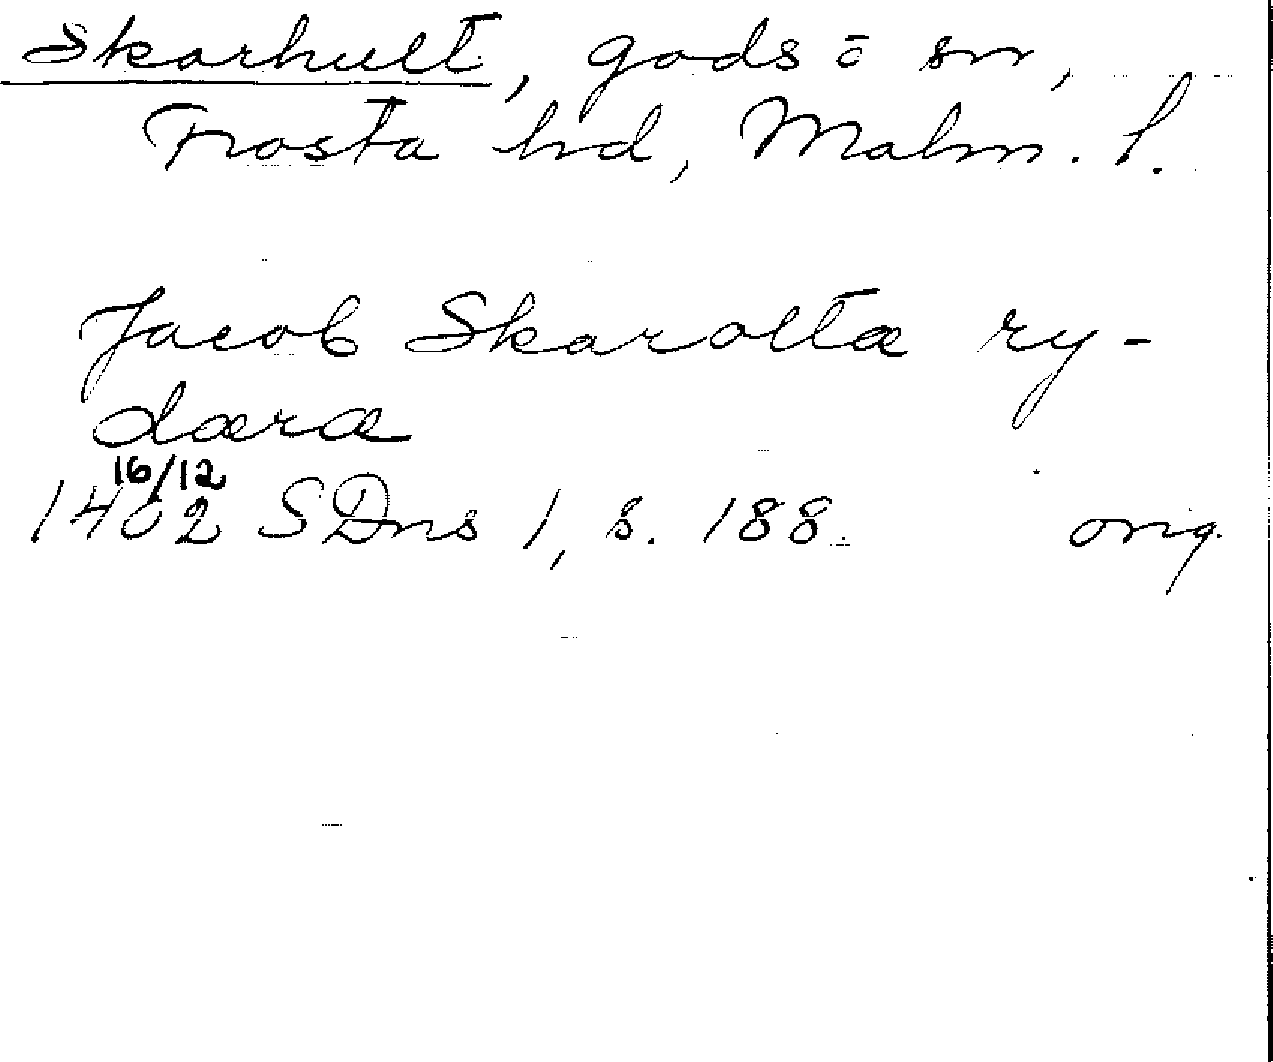 Skarhult, gods o sn,
Frosta hd, Malm. l.
Jacob Skarolta ry-
dæra
16/12
1402 SDns 1, s. 188. orig.